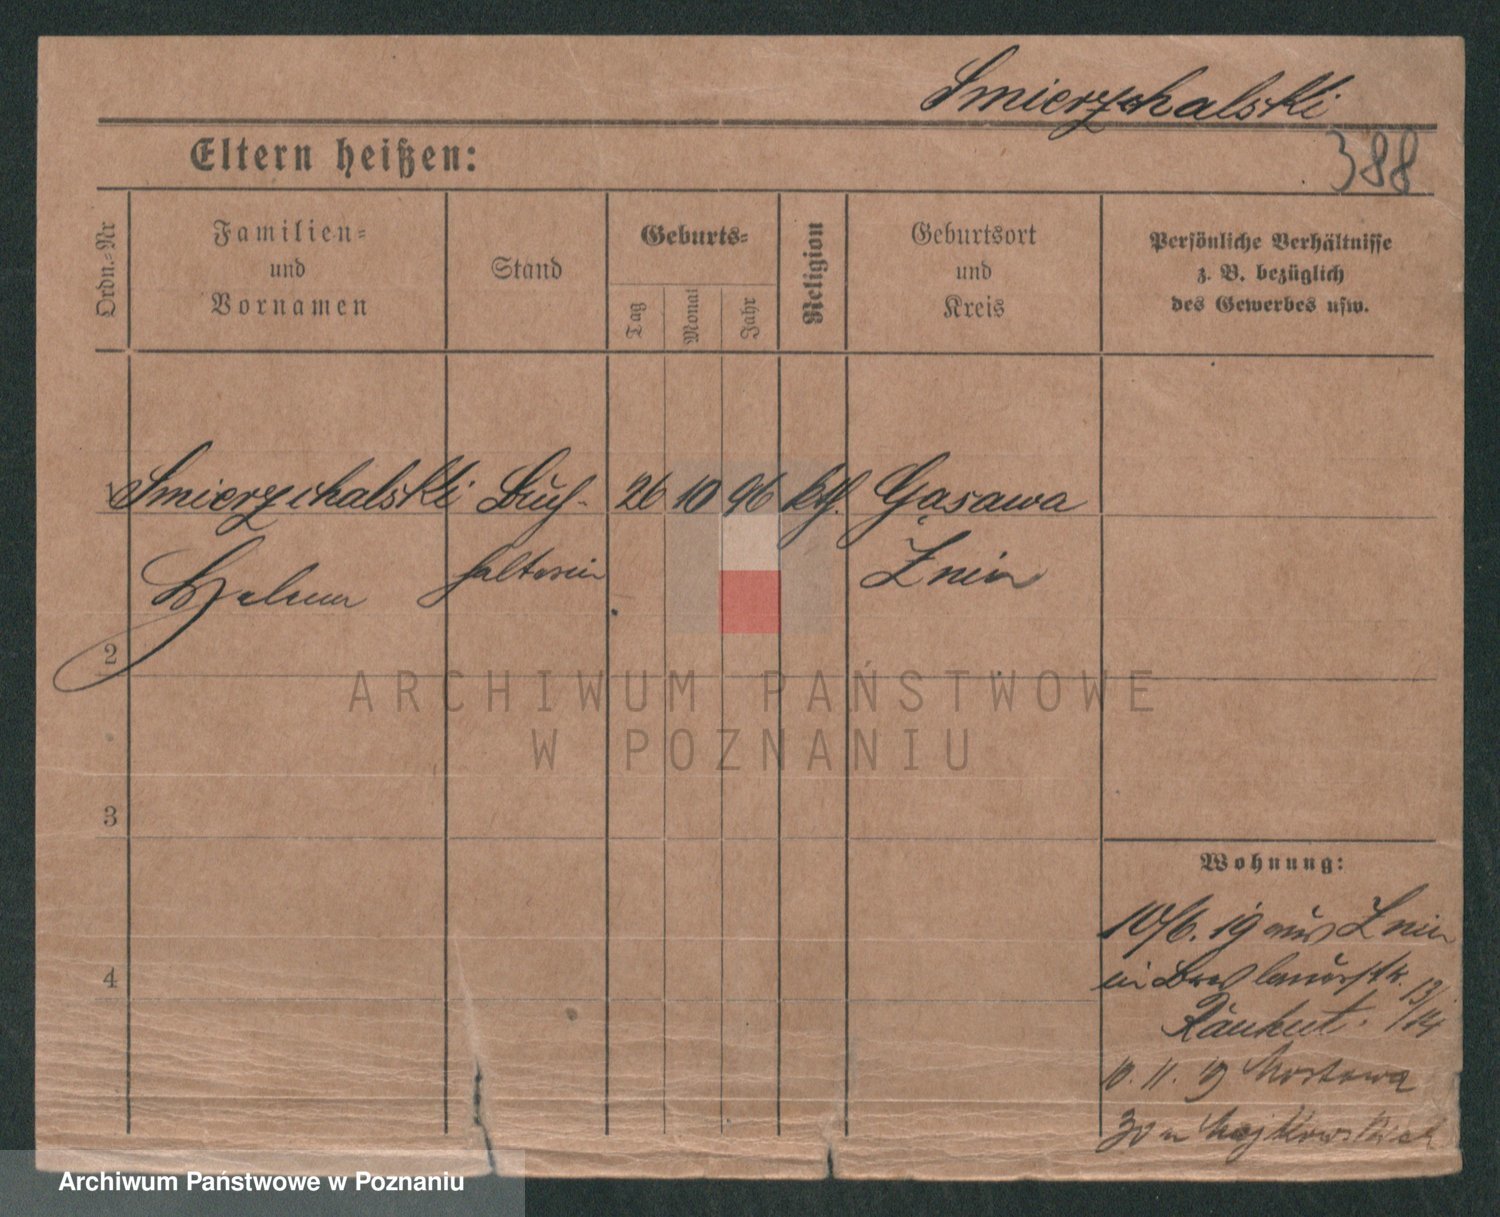 Smierzchalski
388
Eltern heißen:
Ordn.-Nr
Familien-
und
Vornamen
Stand
Geburts-
Tag
Monat
Jahr
Religion
Geburtsort
und
Kreis
Persönliche Verhältnisse
z. B. bezüglich
des Gewerbes usw.
1 Smierzchalski Buch- 26 10 96 kth. Gąsawa
Helena halterin Żnin
2
ARCHIWUM PAŃSTWOWE
W POZNANIU
3
Wohnung:
10/6. 19 aus Żnin
in Breslauerstr. 13/14
4
10. 11. 19 Mostowa
30
Archiwum Państwowe w Poznaniu